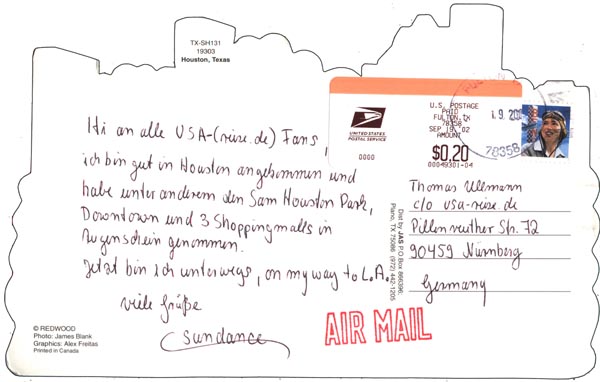 TX-SH131
19303
Houston, Texas
Hi an alle USA-(reise.de) Fans,
ich bin gut in Houston angekommen und
habe unter anderem den Sam Houston Park,
Downtown und 3 Shoppingmalls in
Augenschein genommen.
Jetzt bin ich unterwegs, on my way to L.A.
viele Grüße
sundance
© REDWOOD
Photo: James Blank
Graphics: Alex Freitas
Printed in Canada
UNITED STATES
POSTAL SERVICE
0000
U.S. POSTAGE
PAID
FULTON, TX
78358
SEP 19, '02
AMOUNT
$0.20
00049301-04
78358
Dist by JAS P.O Box 868396
Plano, TX 75086 (972) 442-1205
Thomas Ullmann
c/o usa-reise.de
Pillenreuther Str. 72
90459 Nürnberg
Germany
AIR MAIL